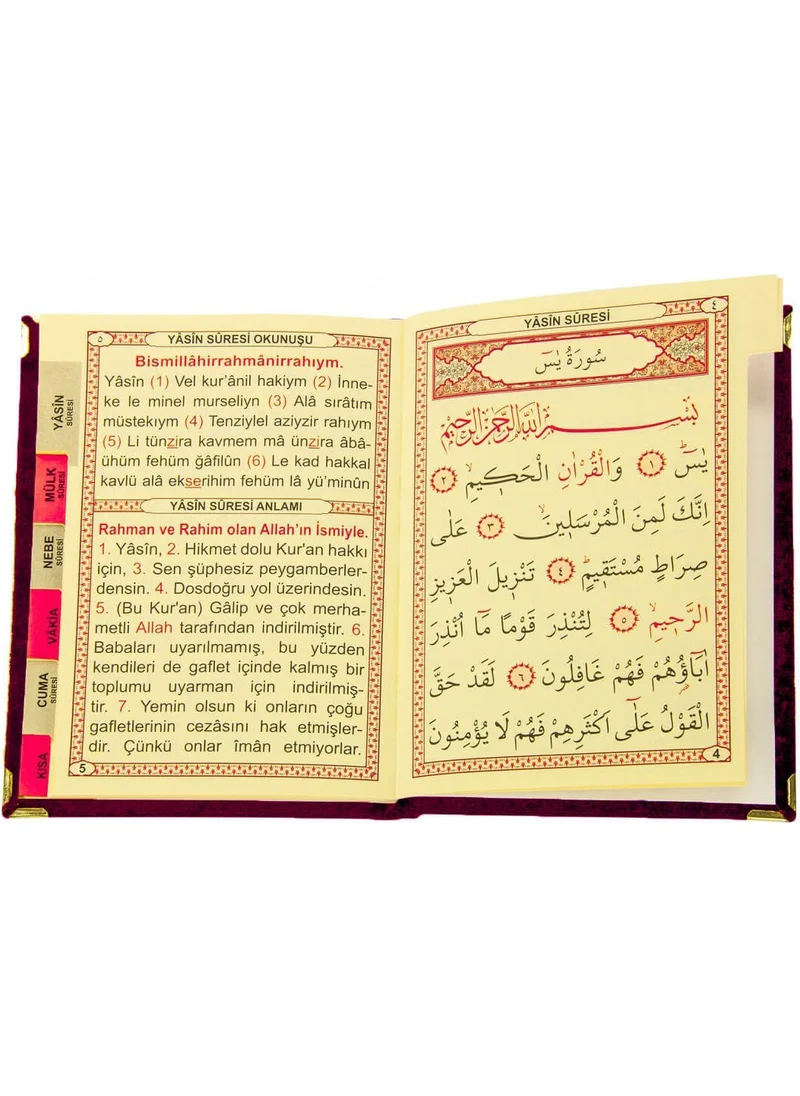 YÂSİN SÛRESİ
٤
سُورَةُ يٰسٓ
بِسْمِ اللّٰهِ الرَّحْمٰنِ الرَّحٖيمِ
يٰسٓۜ ﴿١﴾ وَالْقُرْاٰنِ الْحَكٖيمِۙ ﴿٢﴾
اِنَّكَ لَمِنَ الْمُرْسَلٖينَۙ ﴿٣﴾ عَلٰى
صِرَاطٍ مُسْتَقٖيمٍۜ ﴿٤﴾ تَنْزٖيلَ الْعَزٖيزِ
الرَّحٖيمِۙ ﴿٥﴾ لِتُنْذِرَ قَوْمًا مَٓا اُنْذِرَ
اٰبَٓاؤُ۬هُمْ فَهُمْ غَافِلُونَ ﴿٦﴾ لَقَدْ حَقَّ
الْقَوْلُ عَلٰٓى اَكْثَرِهِمْ فَهُمْ لَا يُؤْمِنُونَ
4
٥
YÂSİN SÛRESİ OKUNUŞU
Bismillâhirrahmânirrahıym.
Yâsîn (1) Vel kur'ânil hakiym (2) İnne-
ke le minel murseliyn (3) Alâ sırâtım
müstekıym (4) Tenziylel aziyzir rahıym
(5) Li tünzira kavmem mâ ünzira âbâ-
ühüm fehüm ğafilûn (6) Le kad hakkal
kavlü alâ ekserihim fehüm lâ yü'minûn
YÂSİN SÛRESİ ANLAMI
Rahman ve Rahim olan Allah'ın İsmiyle.
1. Yâsîn, 2. Hikmet dolu Kur'an hakkı
için, 3. Sen şüphesiz peygamberler-
densin. 4. Dosdoğru yol üzerindesin.
5. (Bu Kur'an) Gâlip ve çok merha-
metli Allah tarafından indirilmiştir. 6.
Babaları uyarılmamış, bu yüzden
kendileri de gaflet içinde kalmış bir
toplumu uyarman için indirilmiş-
tir. 7. Yemin olsun ki onların çoğu
gafletlerinin cezâsını hak etmişler-
dir. Çünkü onlar îmân etmiyorlar.
5
YÂSİN
SÛRESİ
MÜLK
SÛRESİ
NEBE
SÛRESİ
VÂKIA
CUMA
SÛRESİ
KISA